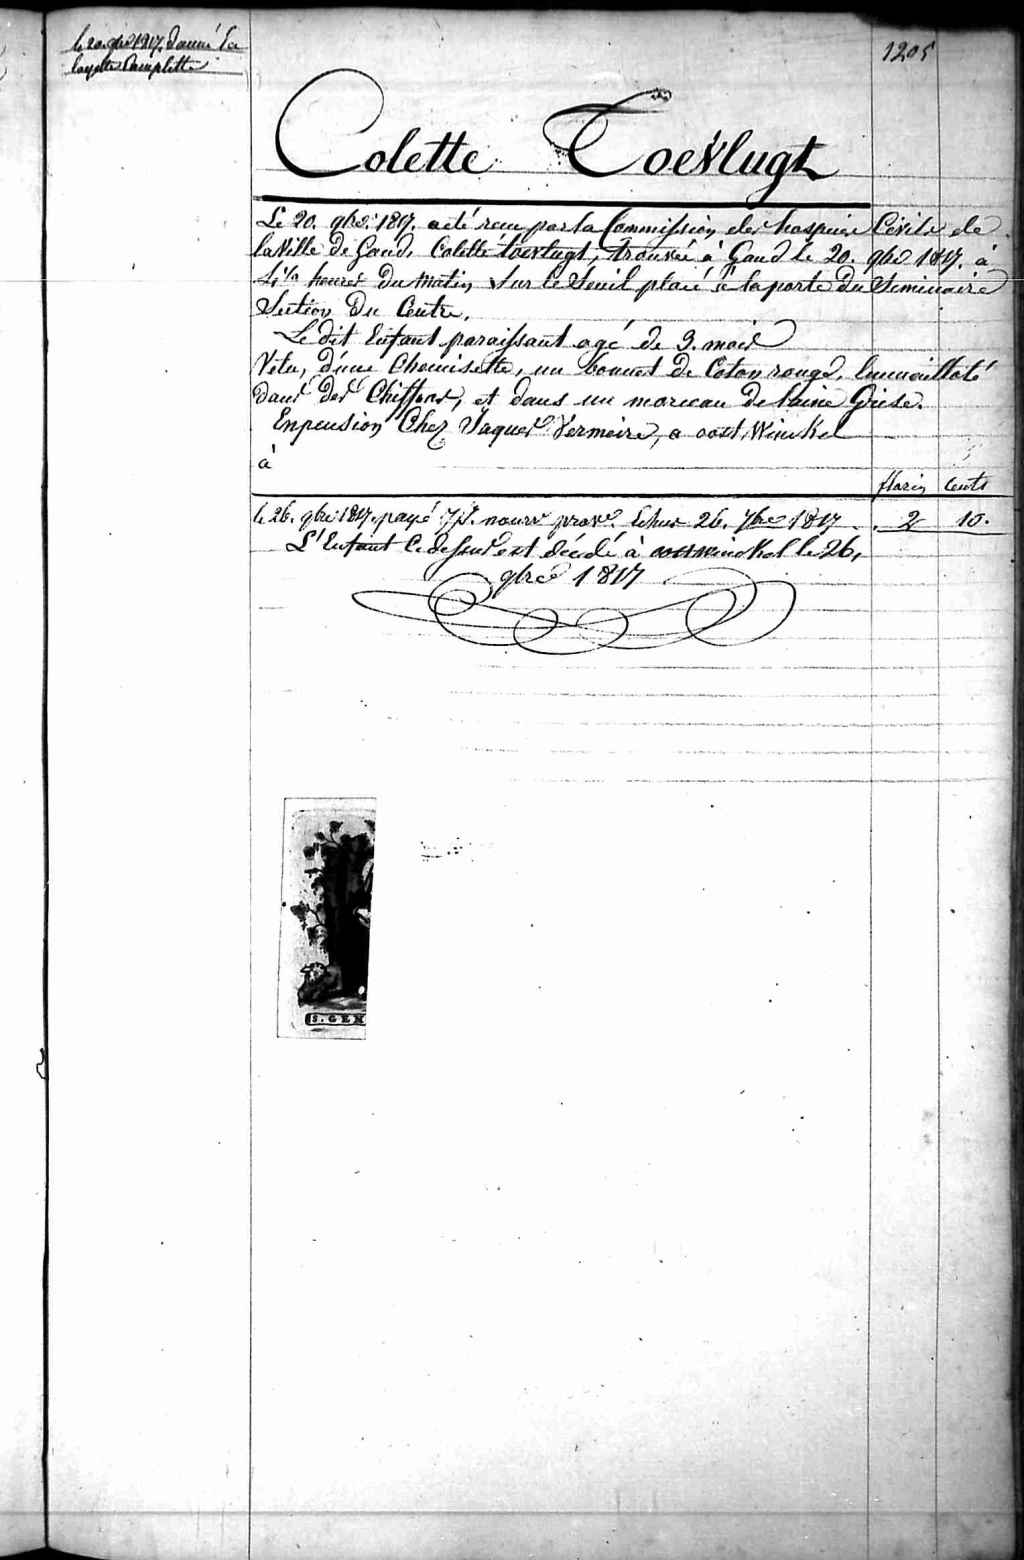 le 20 gbre 1817 donné la
layette complette
1205
Colette Toevlugt
Le 20. gbre 1817. a été reçu par la Commission des hospices Civils de
la Ville de Gand, Colette toevlugt, trouvée à Gand le 20. gbre 1817. à
heures du Matin, sur le Seuil placé à la porte du Seminaire
Section Du Centre.
Le dit Enfant paraissant agé de 3. mois
Vetu, d'une Chemisette, un bonnet de Coton rouge, Emmailloté
dans des Chiffons, et dans un morceau de laine Grise.
En pension Chez Jaques Vermeire, a oost Winckel
à
florins cents
le 26. gbre 1817. payé 7 J. nourr prov. Echus 26. 1817 2 10.
L'Enfant Ce dessus est décédé à oostwinckel le 26,
gbre 1817
S. GEN